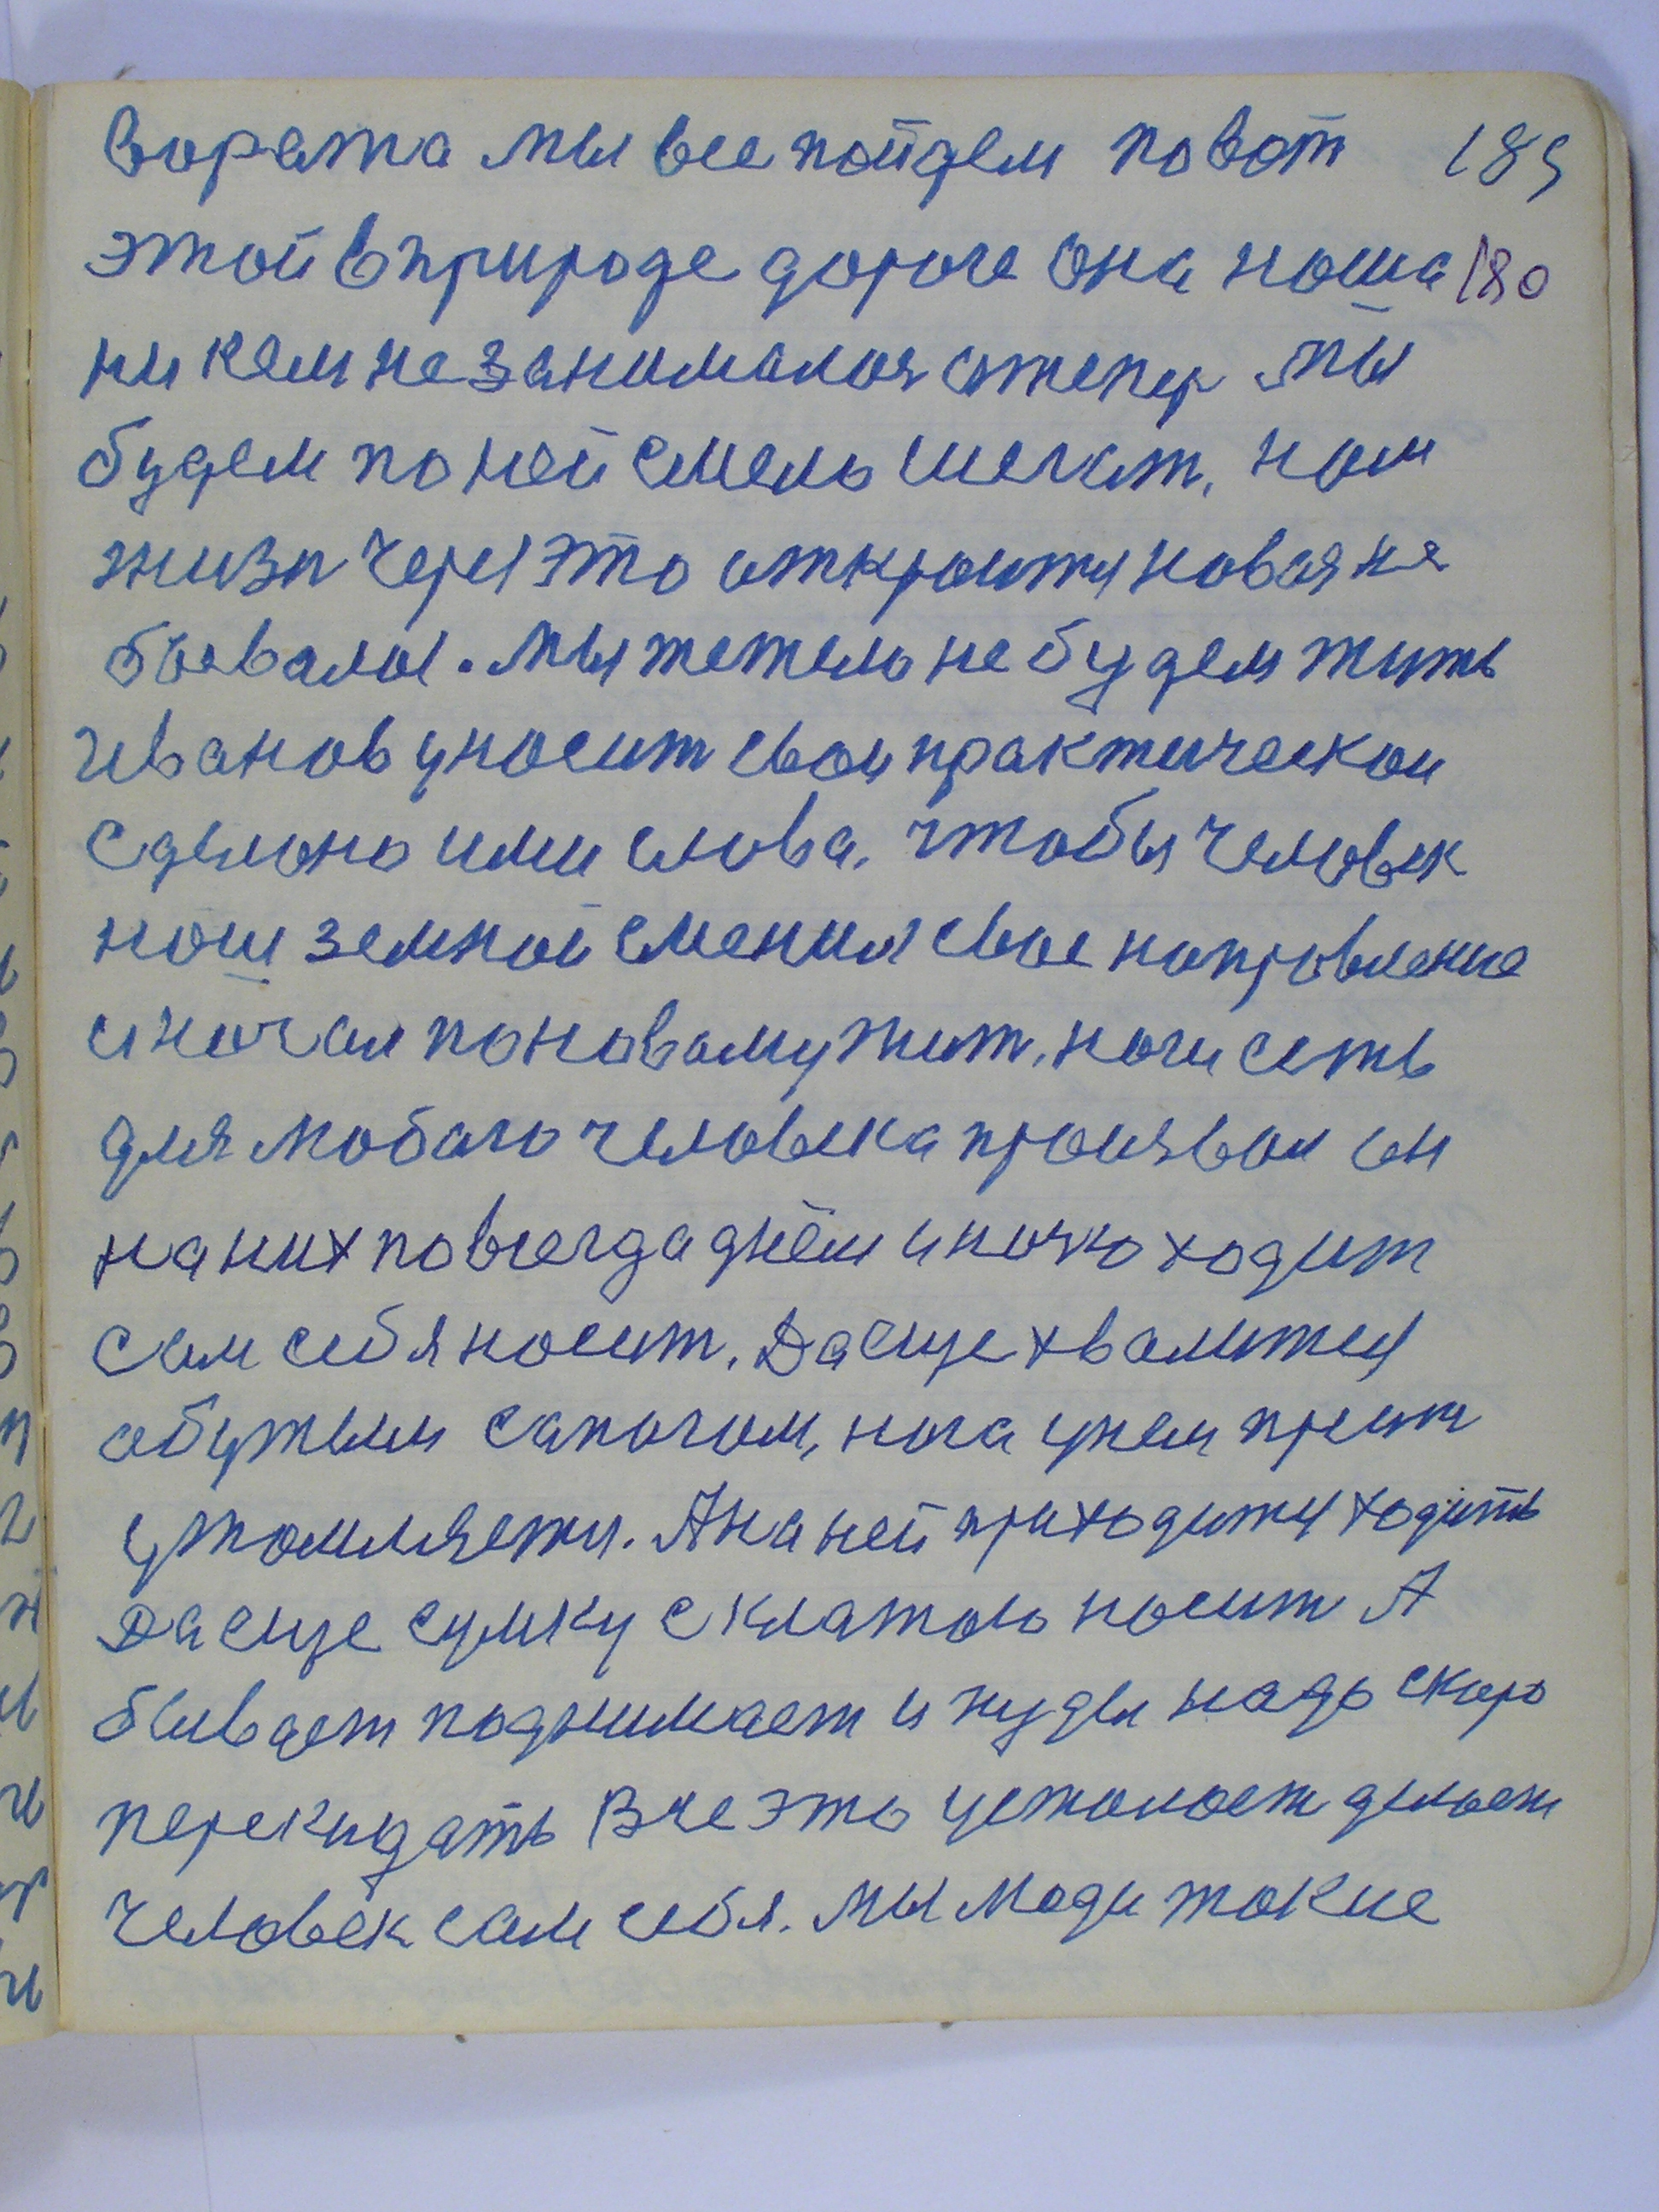 вората мы все пойдем по вот 189
этой в природе дороге она наша 180
ни кем не занималас а тепер мы
будем по ней смело шегат, нам
жизн через это откроится новая не
бывалая. Мы тежело не будем жить
Иванов уносит свои практически
сделано ими слова. чтобы человек
наш земной сменил свое направление
и начал по новаму жит, ноги есть
для любого человека произвол он
на них по всегда днём и ночю ходит
сам себя носит. Да еще хвалится
обутым сапогом, нога у нем преит
утомляется. А на ней приходится ходить
Да еще сумку с клатою носит А
бывает поднимает и пуды надо скоро
перекидать Все это усталост делает
человек сам себя. Мы люди такие